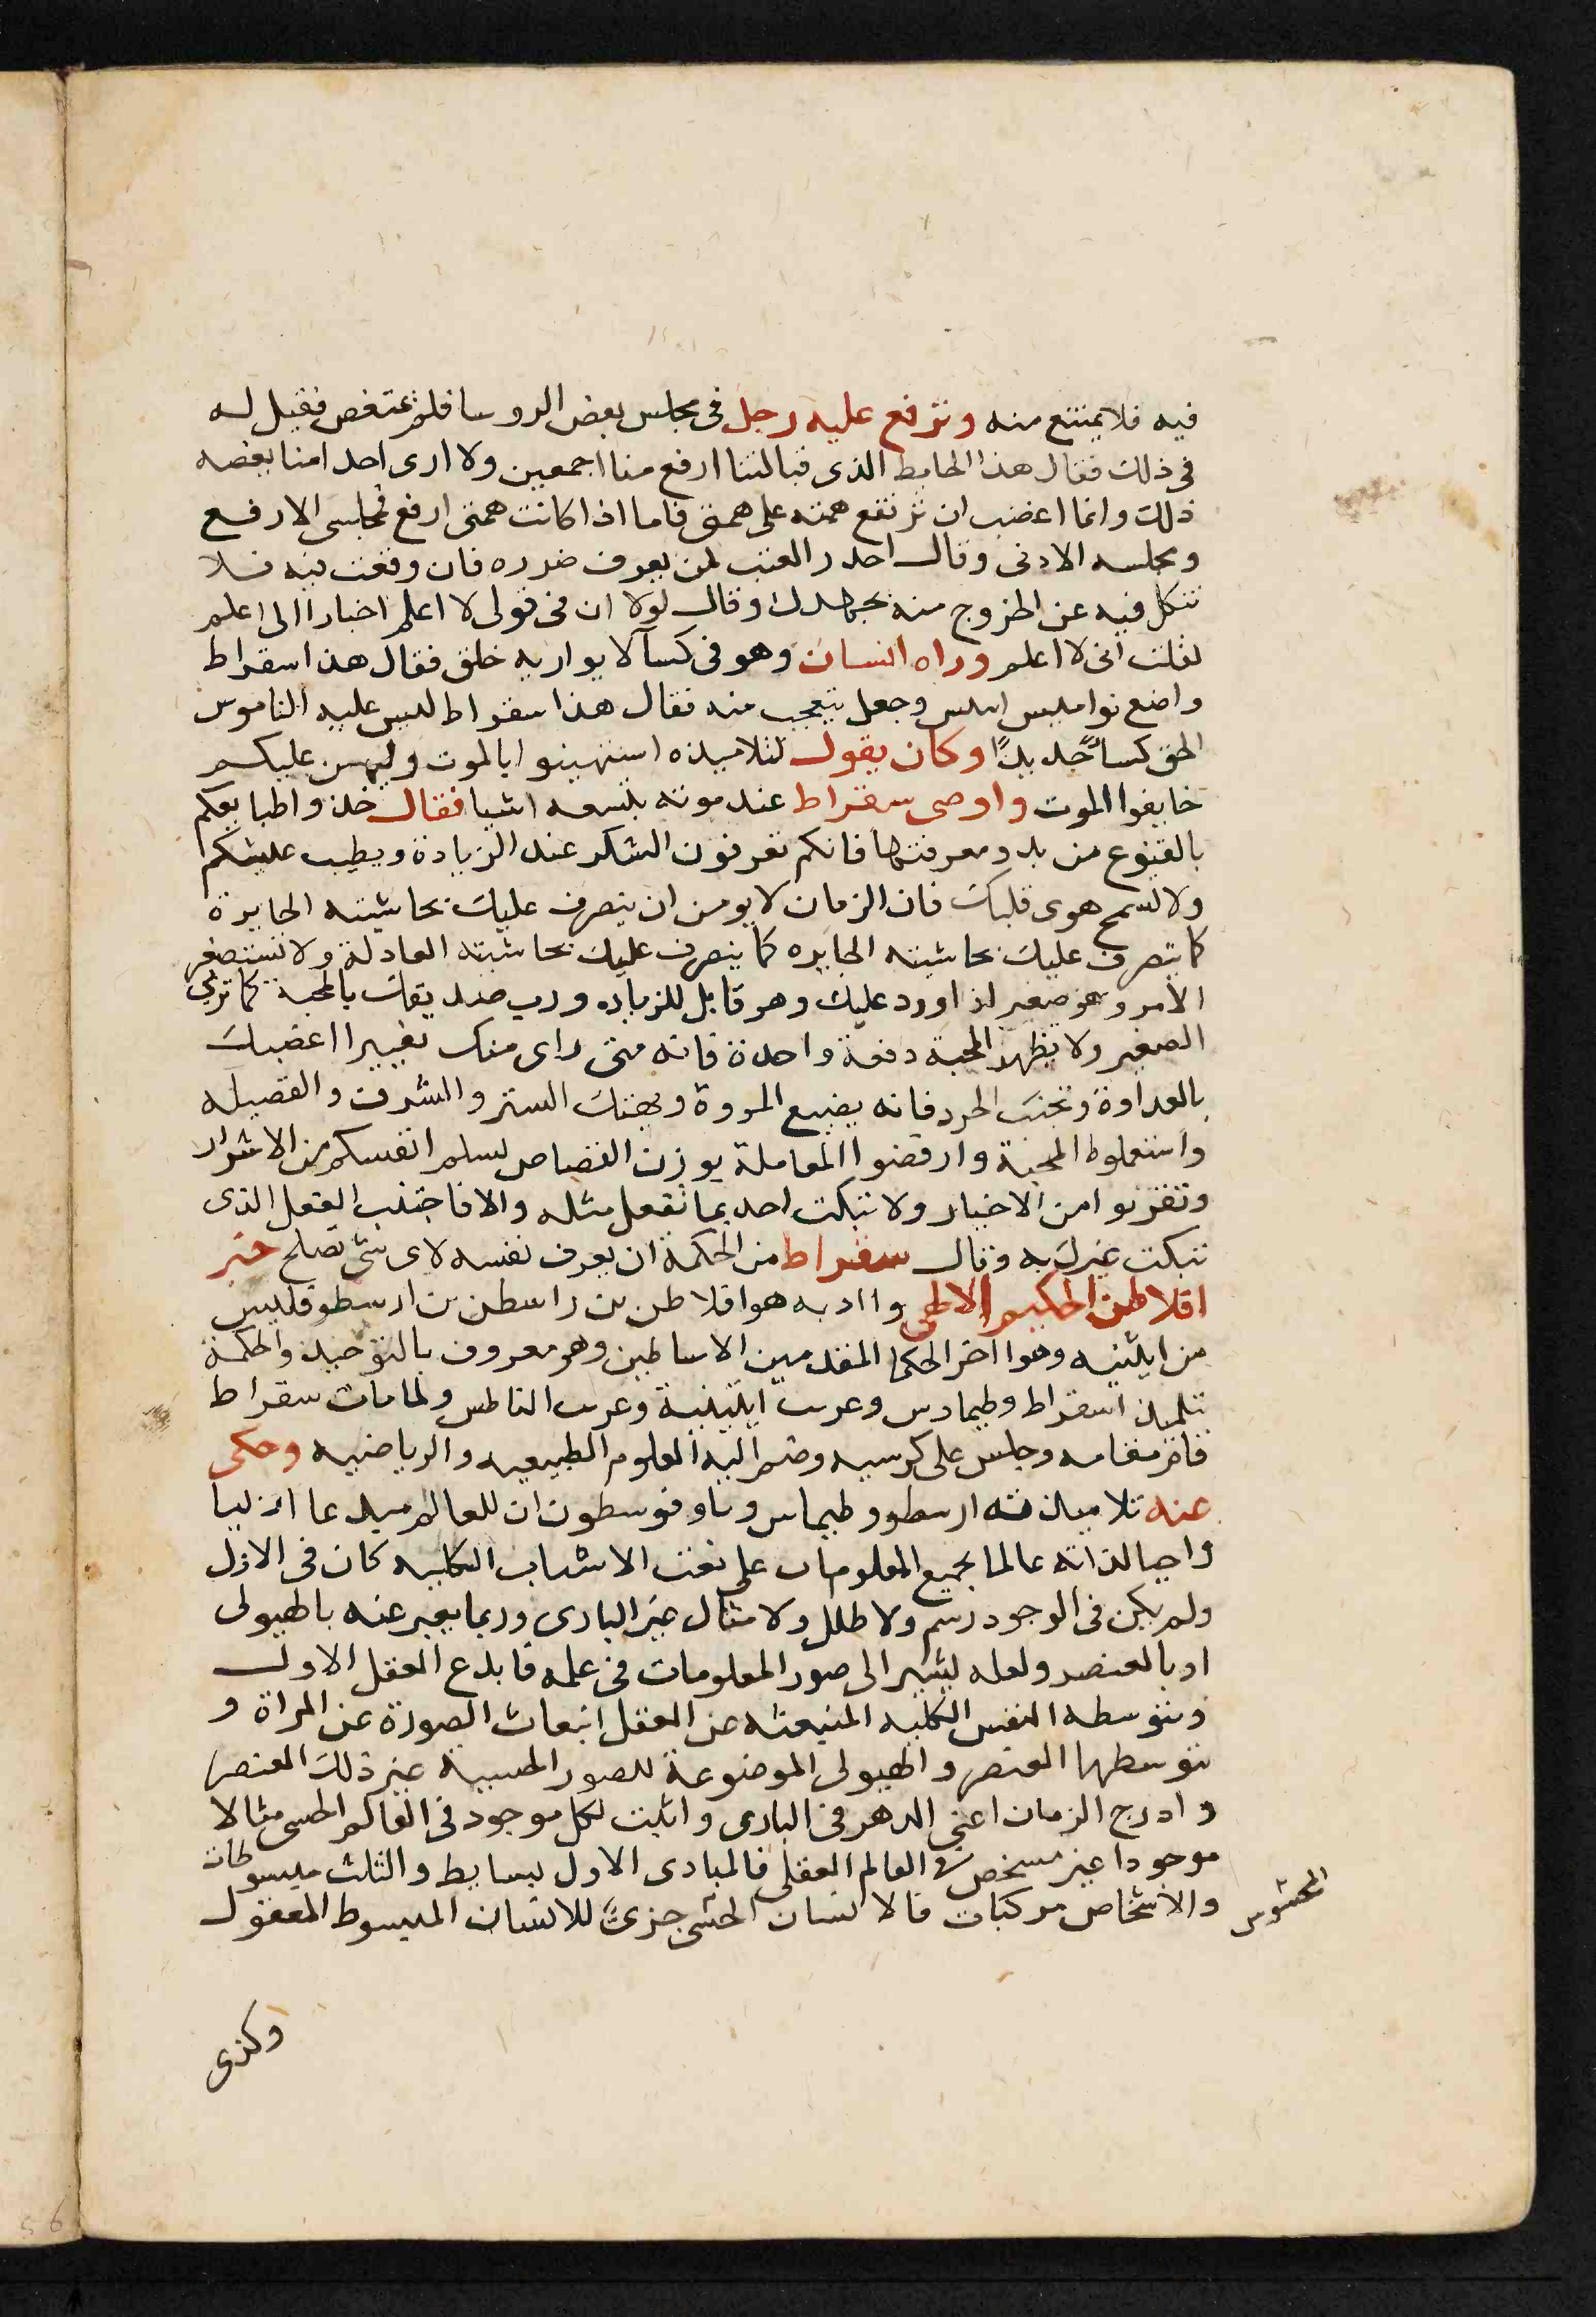 فيه فلا يمتنع منه وترفع عليه رجل في مجلس بعض الروسا فلم يمتعض فقيل له
في ذلك فقال هذا الحايط الذى قبالتنا ارفع منا اجمعين ولا ارى احدا منا بغضه
ذلك وانما اغضب ان ترتفع همته على همتى فاما اذا كانت همتى ارفع فمجلسى الارفع
ومجلسه الادنى وقال احدر العتب لمن يعرف ضرره فان وقعت فيه فلا
تتكل فيه عن الخروج منه بجهدك وقال لولا ان في قولى لا اعلم اخبارا انى اعلم
لقلت انى لا اعلم وراه انسان وهو في كسآ لا يواريه خلق فقال هذا سقراط
واضع نواميس وجعل يتعجب منه فقال هذا سقراط ليس عليه الناموس
الحق كساً جديداً وكان يقول لتلاميذه استهينوا بالموت وليهن عليكم
خايفوا الموت واوصى سقراط عند موته بتسعه اشيا فقال خذوا طبايعكم
بالقنوع من بدو معرفتها فانكم تعرفون الشكر عند الزيادة ويطيب عليشكم
ولا لسمح هوى قلبك فان الزمان لا يومن ان يتصرف عليك بحاشيته الجايرة
كا يتصرف عليك بحاشيته الجايره كما يتصرف عليك بحاشيته العادلة ولا تستصغر
الامر وهو صغير اذا ورد عليك وهو قابل للزياده ورب صديقك بالمحبة كما تربى
الصغير ولا تظهر المحبة دفعة واحدة فانه متى راى منك تغييرا اعقبك
بالعداوة وتجنب الحرد فانه يضيع المروة ويهتك الستر والشرف والفضيله
واستعملوا المحبة وارفضوا المعاملة بوزن القصاص لسلم انفسكم من الاشرار
وتقربوا من الاخيار ولا تبكت احد بما تفعل مثله والا فاجتنب الفعل الذى
تبكت غيرك به وقال سقراط من الحكمة ان يعرف نفسه لاى شى تصلح خبر
افلاطن الحكيم الالهى وادابه هو افلاطن بن راسطن بن ارسطوقليس
من ايثنيه وهو اخر الحكما المتقدمين الاساطين وهو معروف بالتوحيد والحكمة
تلميذ سقراط وطيمادس وعرب ايثنية وعرب الناطس ولما مات سقراط
قام مقامه وجلس على كرسيه وضم اليه العلوم الطبيعيه والرياضيه وحكى
عنه تلاميذته ارسطو وطيماس وثاوفوسطون ان للعالم مبدعا ازليا
واجبا لذاته عالما بجميع المعلومات على نعت الاسباب الكليه كان في الازل
ولم يكن في الوجود رسم ولا طلل ولا مثال غير البارى وربما يعبر عنه بالهيولى
او بالعنصر ولعله يشير الى صور المعلومات في علمه فابدع العقل الاول
وبتوسطه النفس الكليه المنبعثه من العقل انبعاث الصورة عن المراة و
بتوسطها العنصر والهيولى الموضوعة للصور الحسية غير ذلك العنصر
وادرج الزمان اعنى الدهر في البارى واثبت لكل موجود في العالم الحسى مثالا
موجودا غير مشخص في العالم العقلى فالمبادى الاول بسايط والثلث مبسوطات
والاشخاص مركبات فالانسان الحسى جزئ للانسان المبسوط المعقول
المحسوس
وكذى